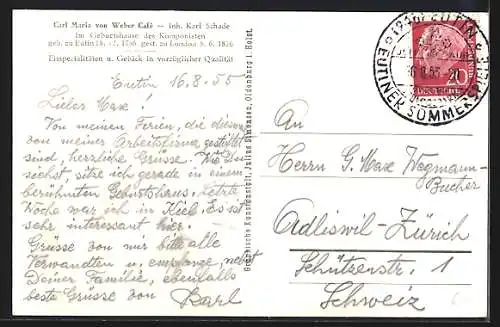 Carl Maria von Weber Café — Inh. Karl Schade
im Geburtshause des Komponisten
geb. zu Eutin 18. 12. 1786 gest. zu London 5. 6. 1826
Eisspezialitäten u. Gebäck in vorzüglicher Qualität
Eutin 16.8.55
Lieber Maxe!
Von meinen Ferien, die diesmal
von meiner Arbeitsfirma gestiftet
sind, herzliche Grüsse. Wie Du
siehst, sitze ich gerade in einem
berühmten Geburtshaus. Letzte
Woche war ich in Kiel. Es ist
sehr interessant hier.
Grüsse von mir bitte alle
Verwandten u. empfange, nebst
Deiner Familie, ebenfalls
beste Grüsse von Karl
Graphische Kunstanstalt, Julius Simonsen, Oldenburg i. Holst.
EUTIN
EUTINER SOMMERSPIELE
16.8.55
20
DEUTSCHE
An
Herrn G. Maxe Wegmann-
Bucher
Adliswil-Zürich
Schützenstr. 1
Schweiz